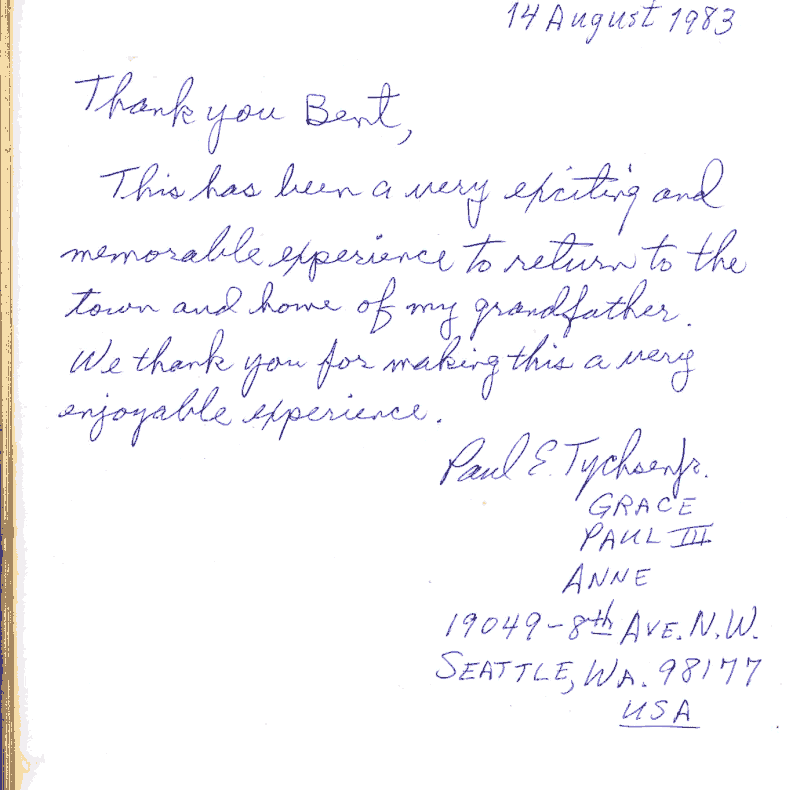 14 August 1983
Thank you Bent,
This has been a very exciting and
memorable experience to return to the
town and home of my grandfather.
We thank you for making this a very
enjoyable experience.
Paul E. Tychsen Jr.
GRACE
PAUL III
ANNE
19049-8th AVE. N.W.
SEATTLE, WA. 98177
USA